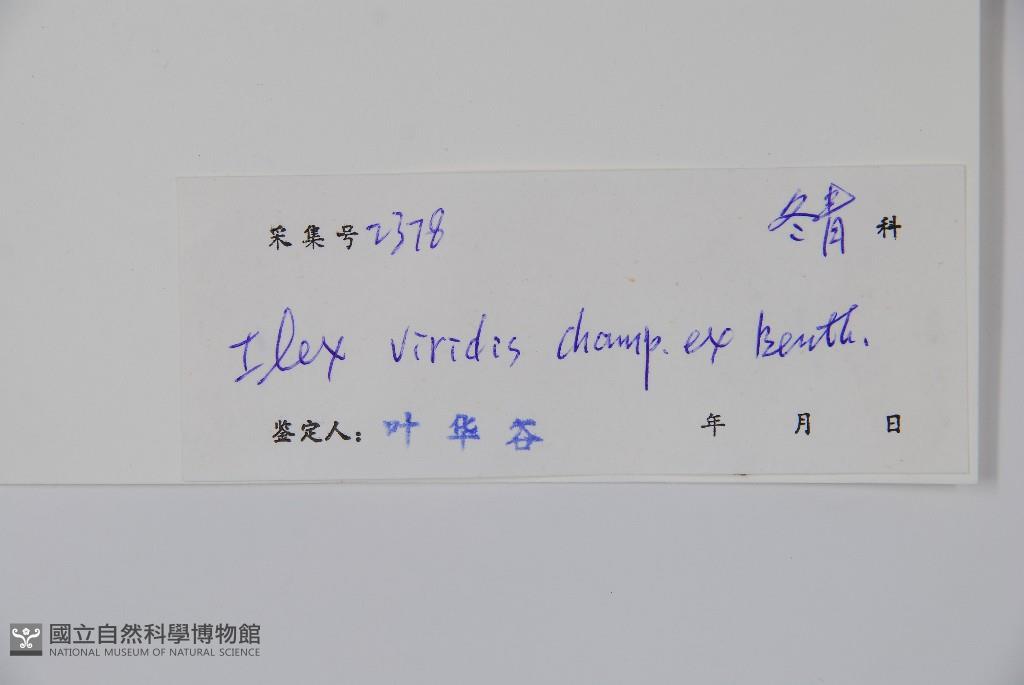 采集号 2378 冬青 科
Ilex viridis champ. ex Benth.
鉴定人: 叶华谷 年 月 日
國立自然科學博物館
NATIONAL MUSEUM OF NATURAL SCIENCE